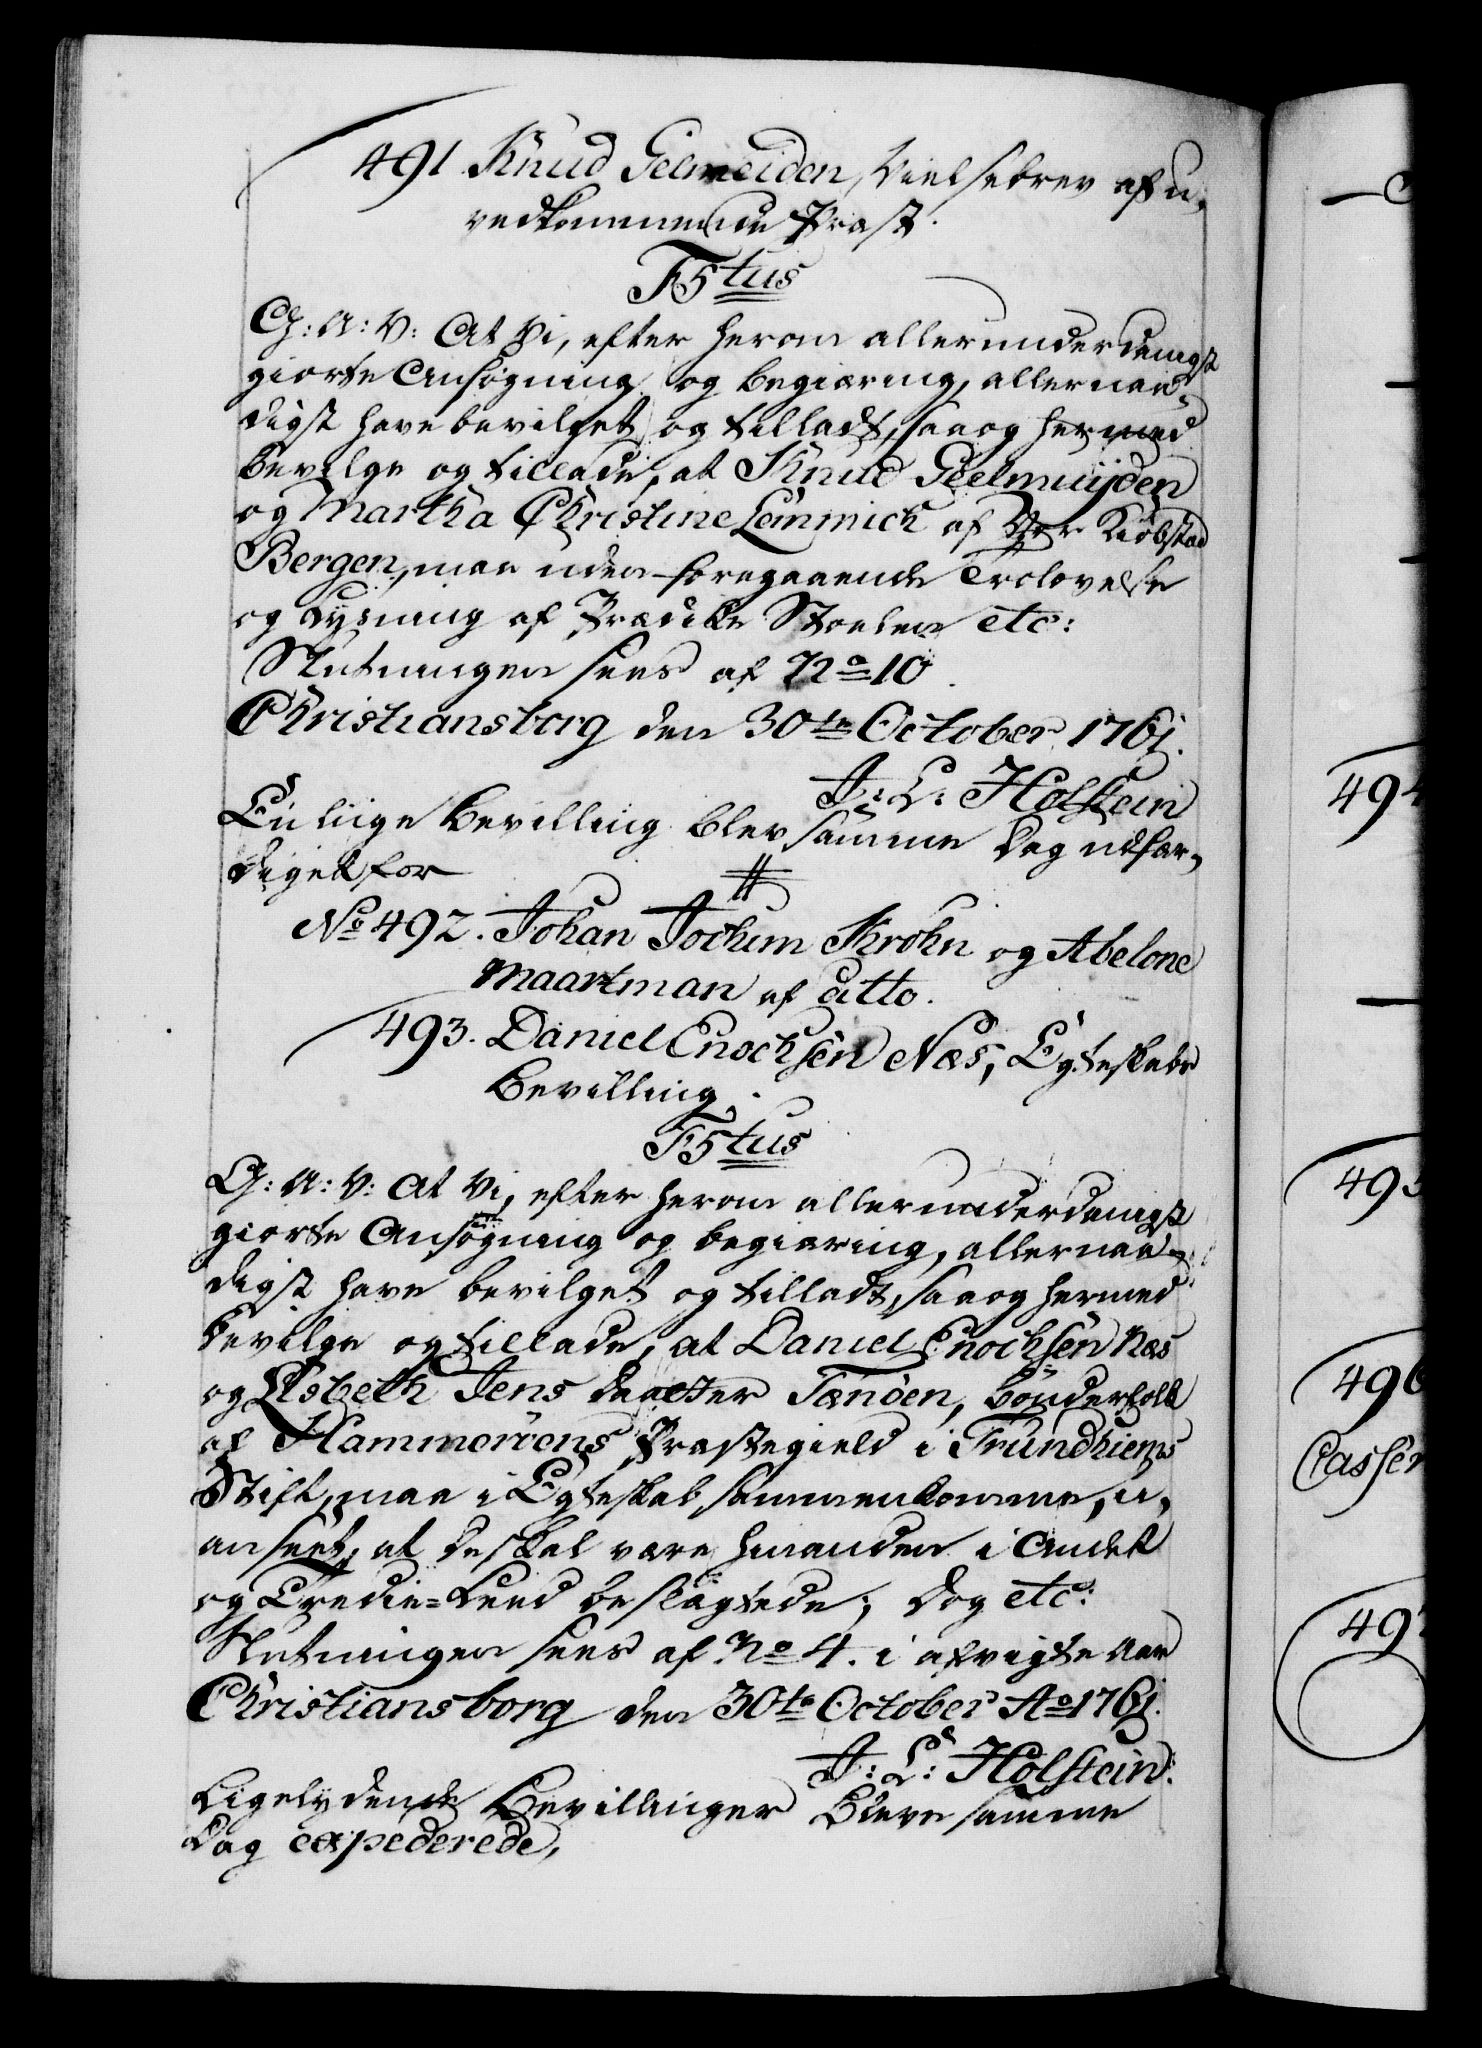 491. Knud Gelmeiden, Vielsebrev af u-
vedkommende Præst.
F5tus
G: A: V: At Vi, efter herom allerunderdanigst
giorte Ansøgning og begiæring, allernaa-
digst have bevilget og tilladt, saa og hermed
bevilge og tillade, at Knud Geelmuijden
og Martha Christine Lemmich af Vor Kiøbstad
Bergen, maa uden foregaaende Trolovelse
og Lysning af Prædike Stoelen etc:
Slutningen sees af No 10.
Christiansborg den 30te October 1761.
J: L: Holstein
En liige Bevilling blev samme Dag udfær-
diget for
No 492. Johan Jochim Krohn og Abelone
Maartman af ditto.
493. Daniel Enochsen Næs, Egteskabs
Bevilling.
F5tus
G: A: V: At Vi, efter herom allerunderdanigst
giorte Ansøgning og begiæring, allernaa-
digst have bevilget og tilladt, saa og hermed
bevilge og tillade, at Daniel Enochsen Næs
og Elsbeth Jens daatter Tænøen, bønderfolk
af Hammerøens Præstegield i Trundhiems
Stift, maa i Egteskab sammenkomme, u-
anseet, at de skal være hinanden i Andet
og Tredie-Leed beslægtede; Dog etc:
Slutningen sees af No 4. i afvigte Aar
Christiansborg den 30te October Ao 1761.
J: L: Holstein.
Ligelydende Bevillinger bleve samme
Dag expederede,
494
495
496
Cassen
497